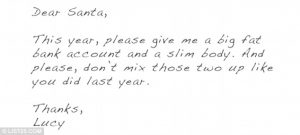 Dear Santa,
This year, please give me a big fat
bank account and a slim body. And
please, don't mix those two up like
you did last year.
Thanks,
Lucy
© LISTS5.COM